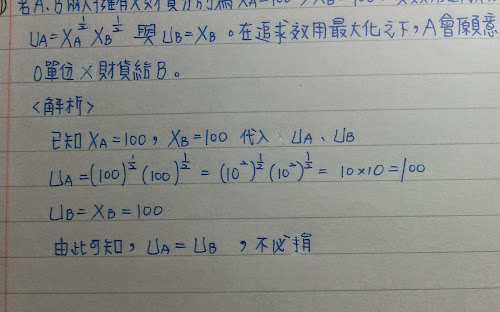 若A、B兩人擁有X財貨分別為 XA=100,XB=100
UA=XA^½ XB^½ 與 UB=XB。在追求效用最大化之下,A會願意
0單位X財貨給B。
<解析>
已知 XA=100,XB=100 代入 UA、UB
UA=(100)^½ (100)^½ = (10²)^½ (10²)^½ = 10×10=100
UB=XB=100
由此可知,UA=UB ,不必捐